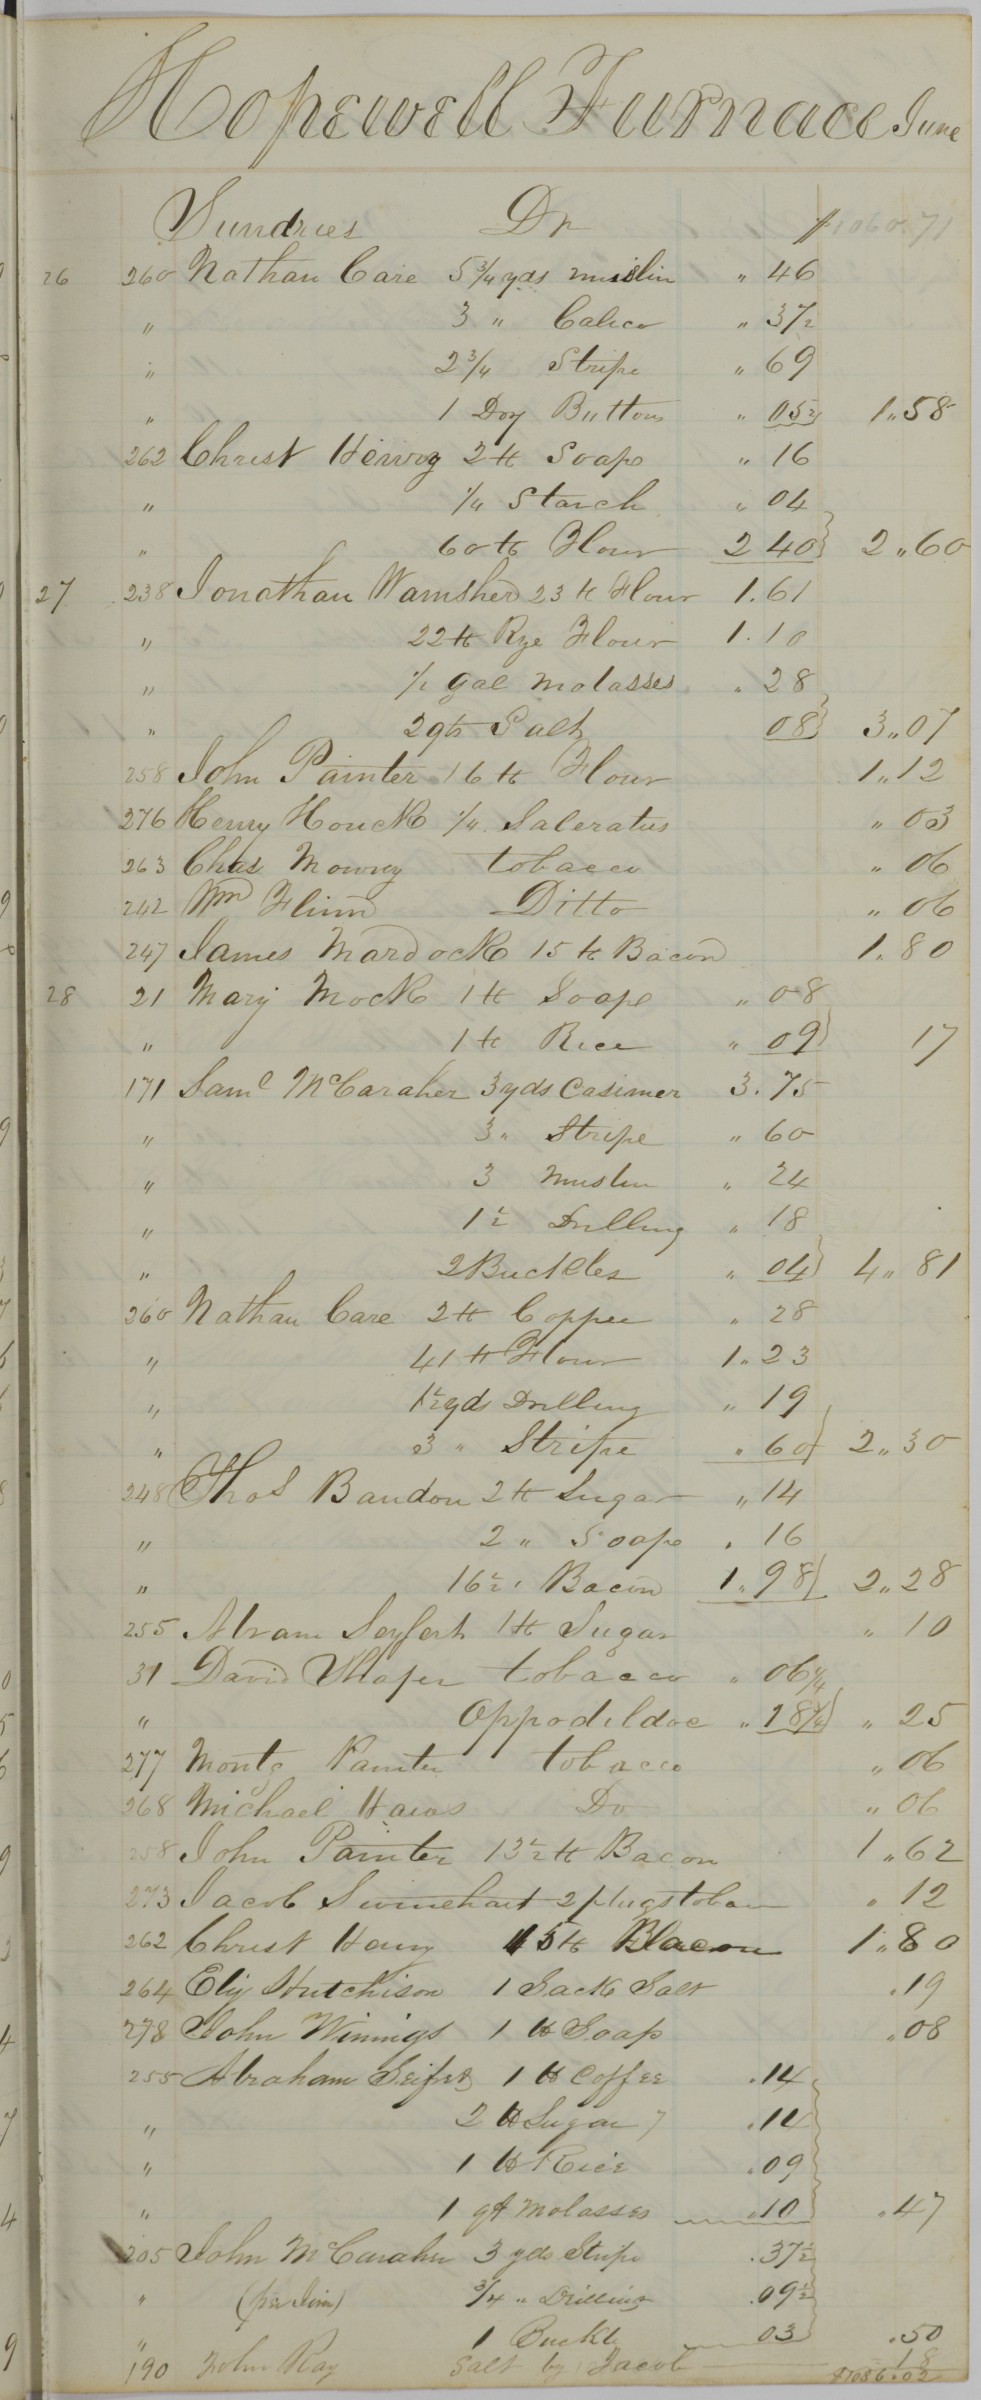 Hopewell Furnace June
Sundries Dr $1060.71
26 260 Nathan Care 5 3/4 yds muslin " 46
" 3 " Calico " 37½
" 2 3/4 Stripe " 69
" 1 Doz Buttons " 05½ 1"58
262 Christ Henry 2 ℔ Soape " 16
" 1/4 Starch " 04
" 60 ℔ Flour 2 40 2"60
27 238 Jonathan Wamsher 23 ℔ Flour 1.61
" 22 ℔ Rye Flour 1.10
" ½ gal molasses " 28
" 2 qts Salt 08 3"07
258 John Painter 16 ℔ Flour 1"12
276 Henry Houck 1/4 Saleratus " 03
263 Chas Mowry tobacco " 06
242 Wm Flinn Ditto " 06
247 James Mardock 15 ℔ Bacon 1.80
28 21 Mary Mock 1 ℔ Soape " 08
" 1 ℔ Rice " 09 17
171 Saml McCaraher 3 yds Casimer 3.75
" 3 " Stripe " 60
" 3 muslin " 24
" 1½ Drilling " 18
" 2 Buckles " 04 4"81
260 Nathan Care 2 ℔ Coppee " 28
" 41 ℔ Flour 1"23
" 1½ yds Drilling " 19
" 3 " Stripe " 60 2"30
248 Thos Baudon 2 ℔ Sugar " 14
" 2 " Soape " 16
" 16½ " Bacon 1"98 2"28
255 Abram Seyfert 1 ℔ Sugar " 10
31 David Shafer tobacco " 06 1/4
" Oppodeldoc " 18 3/4 " 25
277 Montg Painter tobacco " 06
268 Michael Haws Do " 06
258 John Painter 13½ ℔ Bacon 1"62
273 Jacob Swinehart 2 plugs tobac " 12
262 Christ Henry 15 ℔ Bacon 1"80
264 Ely Hutchison 1 Sack Salt .19
278 John Winnings 1 ℔ Soap .08
255 Abraham Seifert 1 ℔ Coffee .14
" 2 ℔ Sugar 7 .14
" 1 ℔ Rice .09
" 1 qt molasses .10 .47
205 John McCaraher 3 yds Stripe .37½
" (per Jim) 3/4 " Drilling .09½
" 1 Buckle 03 .50
190 John Ray Salt by Jacob 18
$1086.02